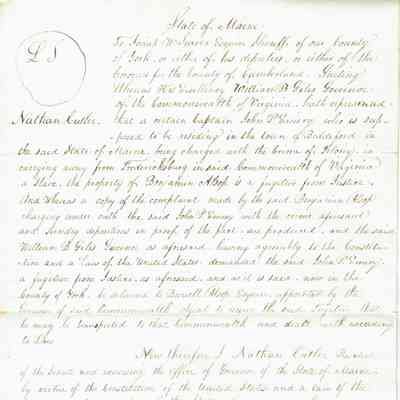 State of Maine
L S
To Josiah W Seaver Esquire Sheriff of our County
of York, or either of his deputies, or either of the
Coroners for the County of Cumberland. Greeting
Whereas His Excellency William B Giles Governor
of the Commonwealth of Virginia, hath represented
Nathan Cutler.
that a certain Captain John P Emery who is sup-
posed to be residing in the town of Biddeford in
the said State of Maine, being charged with the Crime of felony, in
carrying away from Fredericksburg in said Commonwealth of Virginia
a Slave, the property of Benjamin Alsop is a fugitive from Justice.
And whereas a copy of the complaint made by the said Benjamin Alsop
charging under oath the said John P Emery with the crime aforesaid
and Sundry depositions in proof of the fact are produced, and the said
William B Giles Governor as aforesaid, having agreeably to the Constitu-
tion and a Law of the United States, demanded the said John P Emery,
a fugitive from Justice, as aforesaid, and as it is said, now in the
County of York, be delivered to Alsop Esquire, appointed by the
Governor of said Commonwealth Agent to receive the said fugitive that
he may be transported to that Commonwealth and dealt with according
to Law
Now therefore I Nathan Cutler President
of the Senate and exercising the office of Governor of the State of Maine,
by virtue of the Constitution of the United States and a Law of the